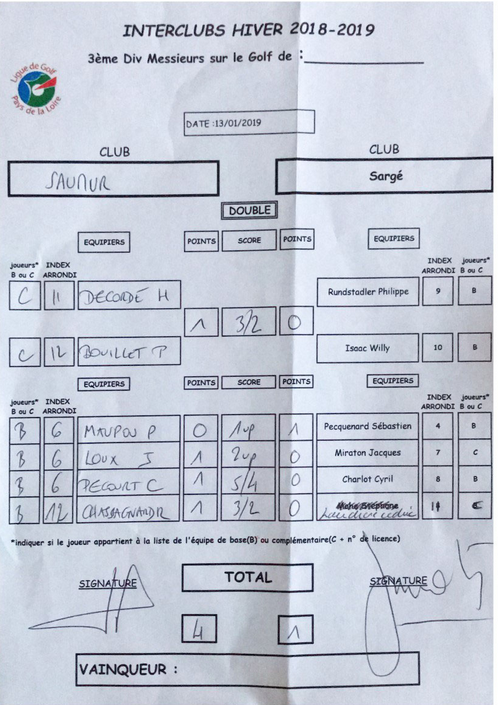 INTERCLUBS HIVER 2018-2019
3ème Div Messieurs sur le Golf de :
Ligue de Golf
Pays de la Loire
DATE :13/01/2019
CLUB CLUB
SAUMUR Sargé
DOUBLE
EQUIPIERS POINTS SCORE POINTS EQUIPIERS
joueurs* B ou C INDEX ARRONDI INDEX ARRONDI joueurs* B ou C
C 11 DECORDÉ H Rundstadler Philippe 9 B
1 3/2 0
C 12 BOUILLET P Isaac Willy 10 B
EQUIPIERS POINTS SCORE POINTS EQUIPIERS
joueurs* B ou C INDEX ARRONDI INDEX ARRONDI joueurs* B ou C
B 6 MAUPOU P 0 1up 1 Pecquenard Sébastien 4 B
B 6 LOUX J 1 2up 0 Miraton Jacques 7 C
B 6 PECOURT C 1 5/4 0 Charlot Cyril 8 B
B 12 CHASSAGNARD R 1 3/2 0
*indiquer si le joueur appartient à la liste de l'équipe de base(B) ou complémentaire(C + n° de licence)
SIGNATURE TOTAL SIGNATURE
4 1
VAINQUEUR :